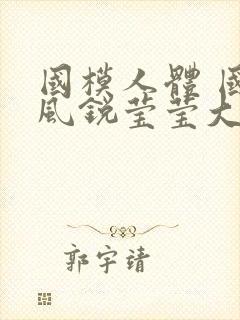 國模人體 國
風銳莹莹大
郭宇靖